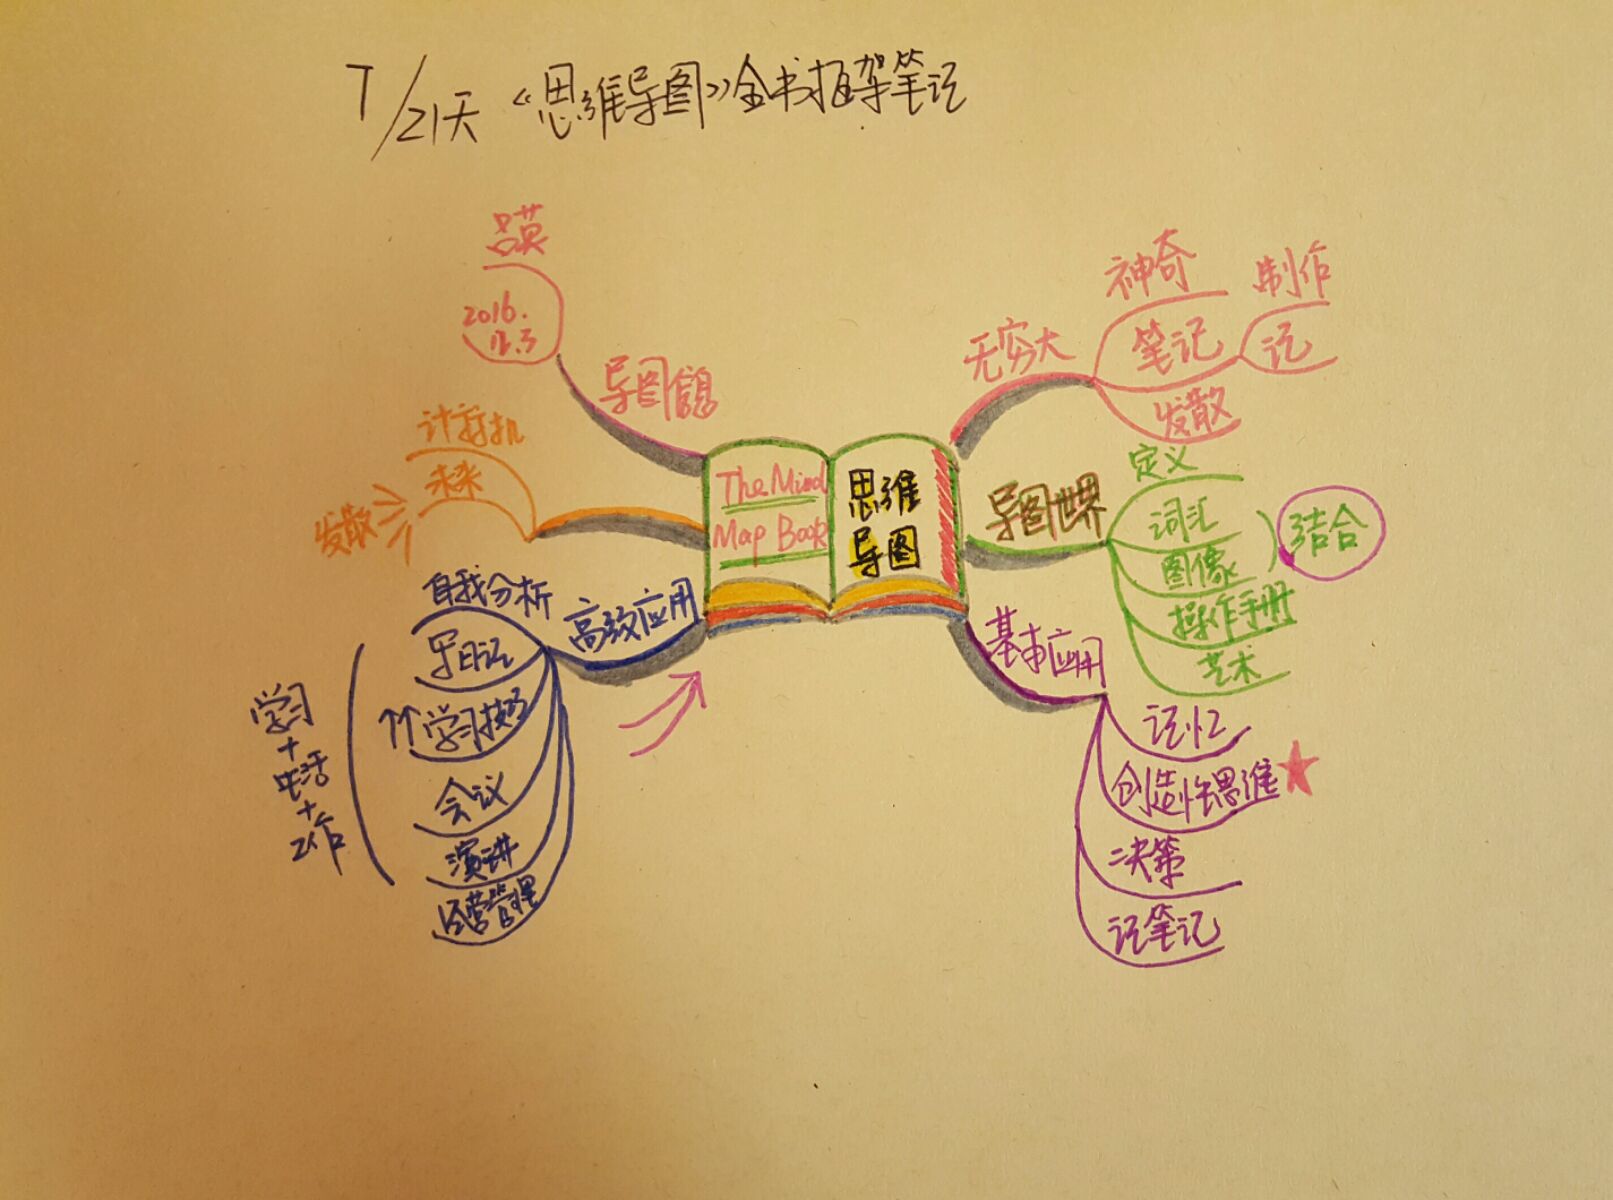 7/21天《思维导图》全书框架笔记
The Mind
Map Book
思维
导图
无穷大
神奇
笔记
制作
记
发散
导图世界
定义
词汇
图像
结合
操作手册
艺术
基本应用
记忆
创造性思维
决策
记笔记
高效应用
自我分析
写日记
学习技巧
会议
演讲
经营管理
学习
+
生活
+
工作
计算机
未来
发散
导图信息
2016.
12.3